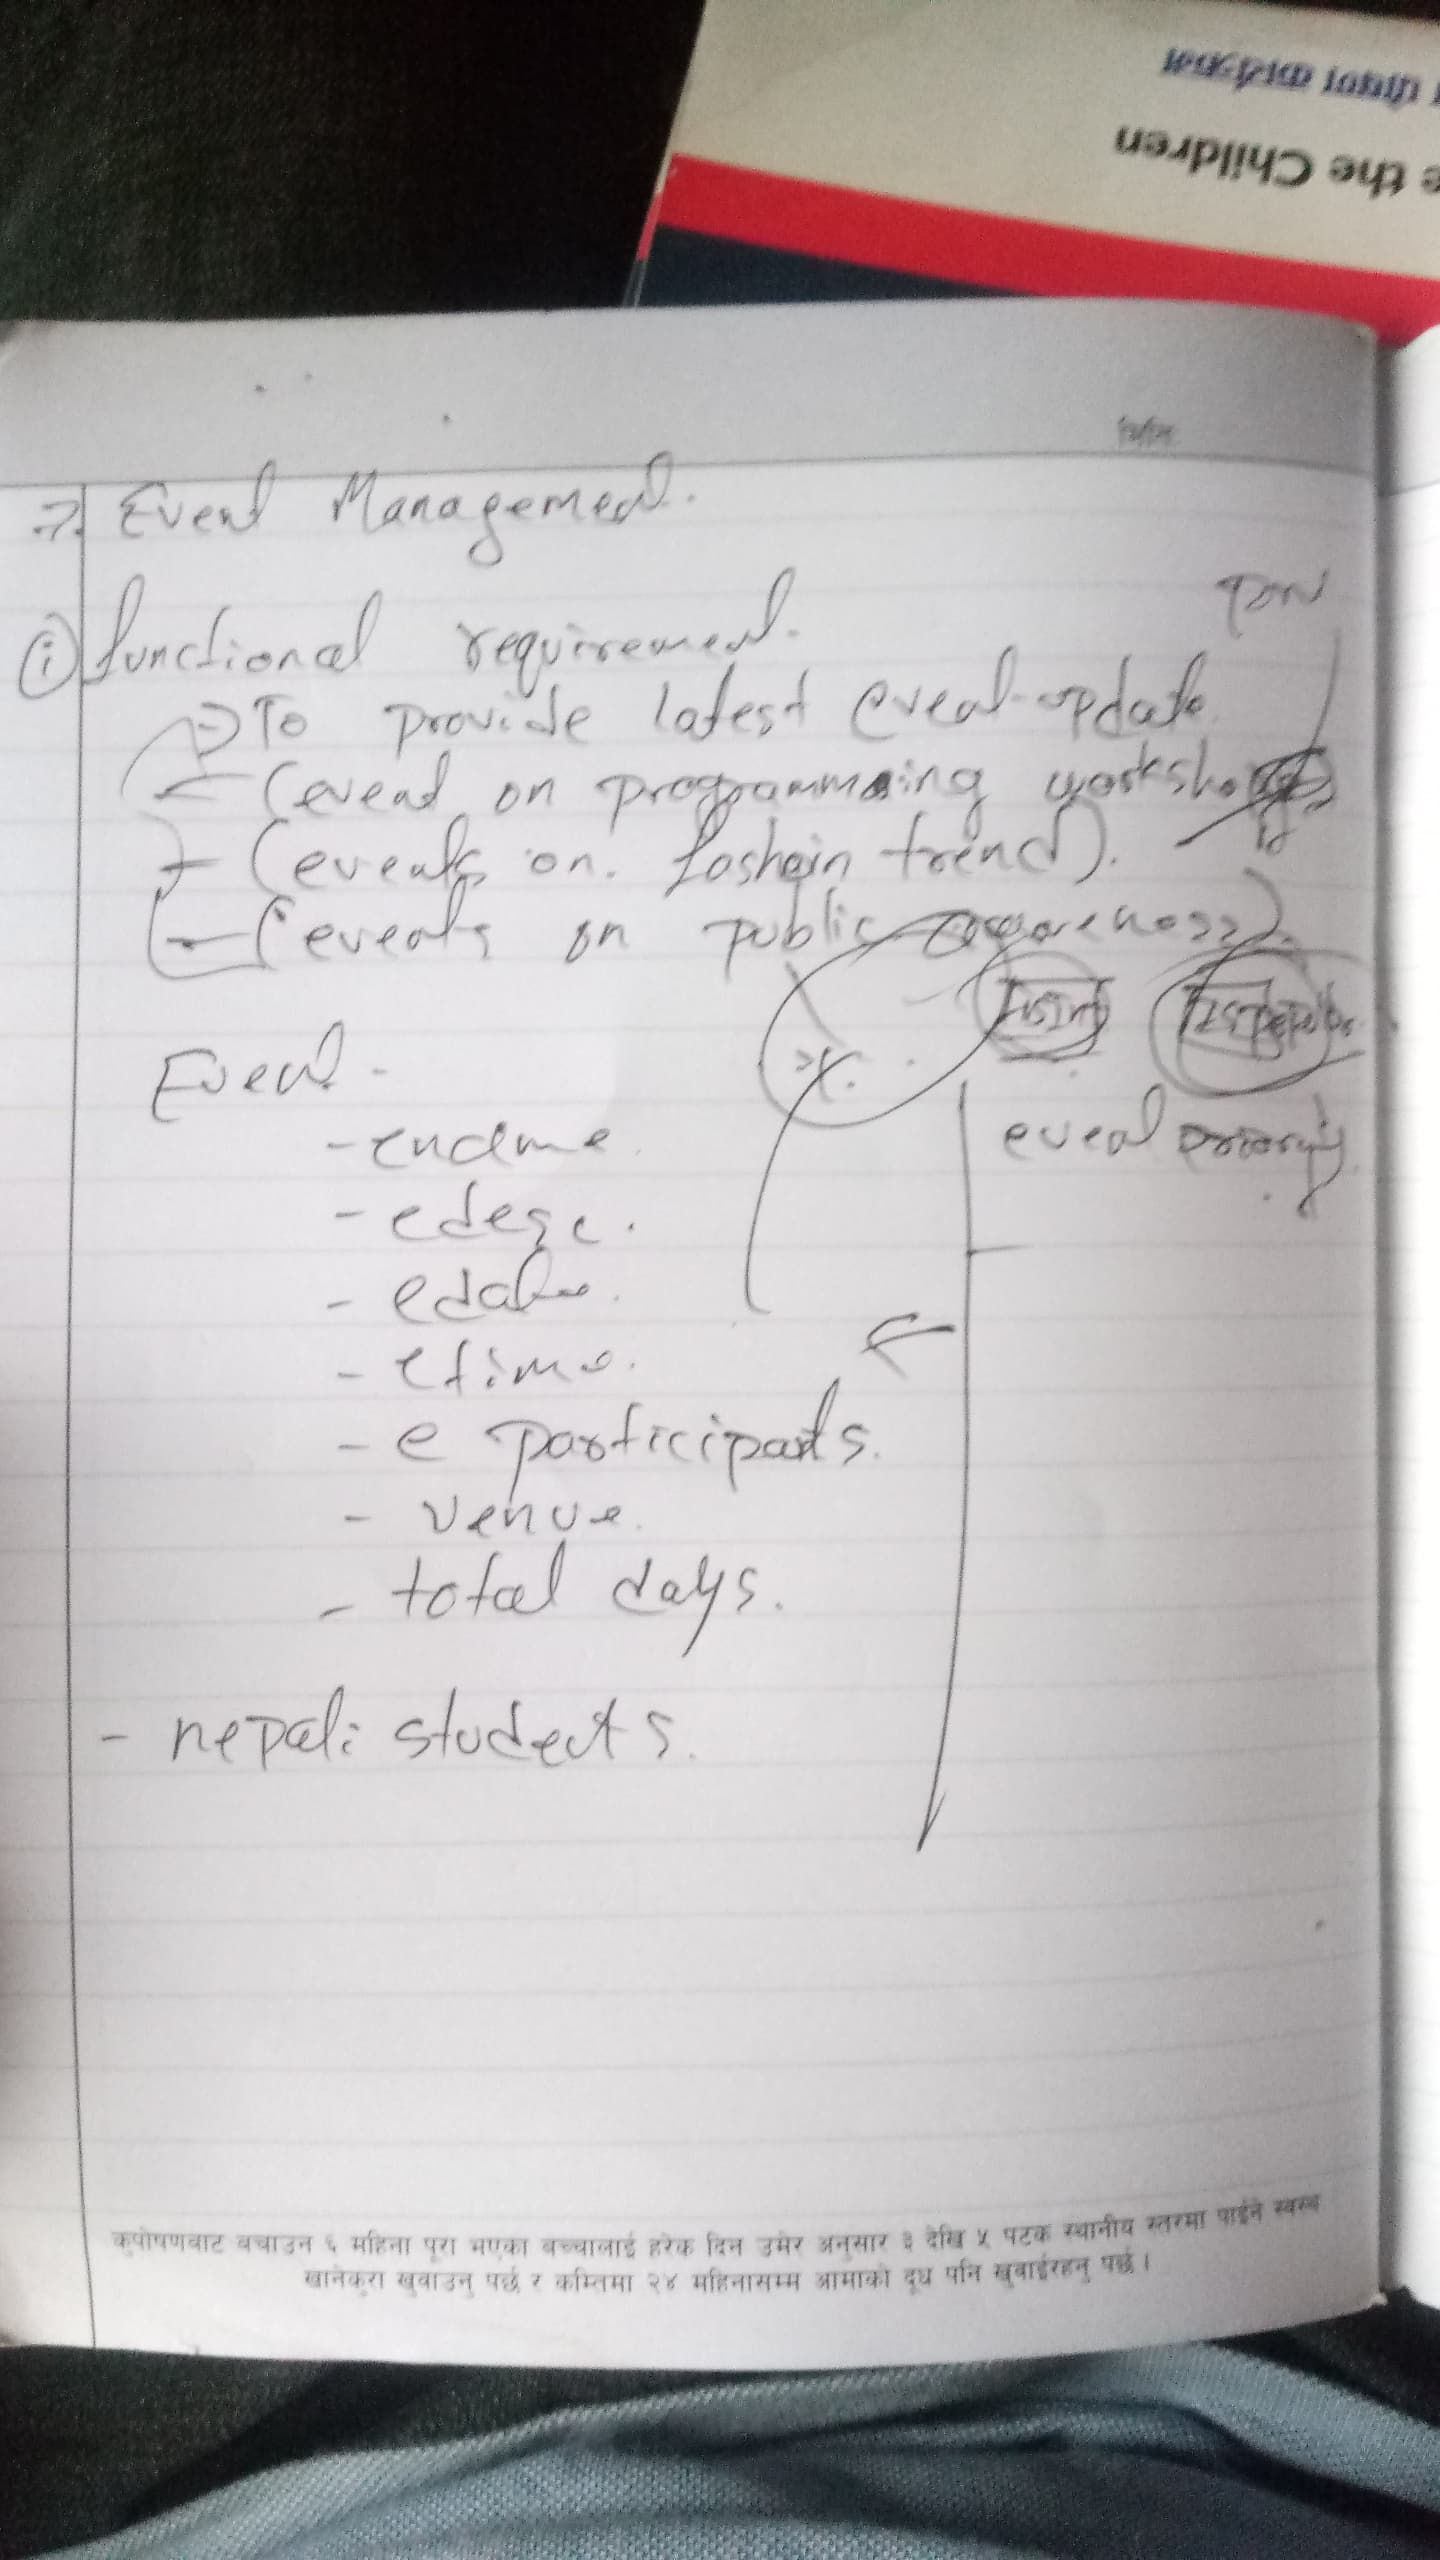 e the Children
मिति:
→ Event Management.
i functional requirement.
→ To provide latest event update.
- (event on programmaing workshop
- (events on. foshain trend).
- (events on public awareness).
Event -
event priority.
- ename.
- edesc.
- edate.
- etime.
- e participants.
- venue.
- total days.
- nepali students.
कुपोषणबाट बचाउन ६ महिना पूरा भएका बच्चालाई हरेक दिन उमेर अनुसार ३ देखि ५ पटक स्थानीय स्तरमा पाईने स्वस्थ
खानेकुरा खुवाउनु पर्छ र कम्तिमा २४ महिनासम्म आमाको दूध पनि खुवाईरहनु पर्छ ।